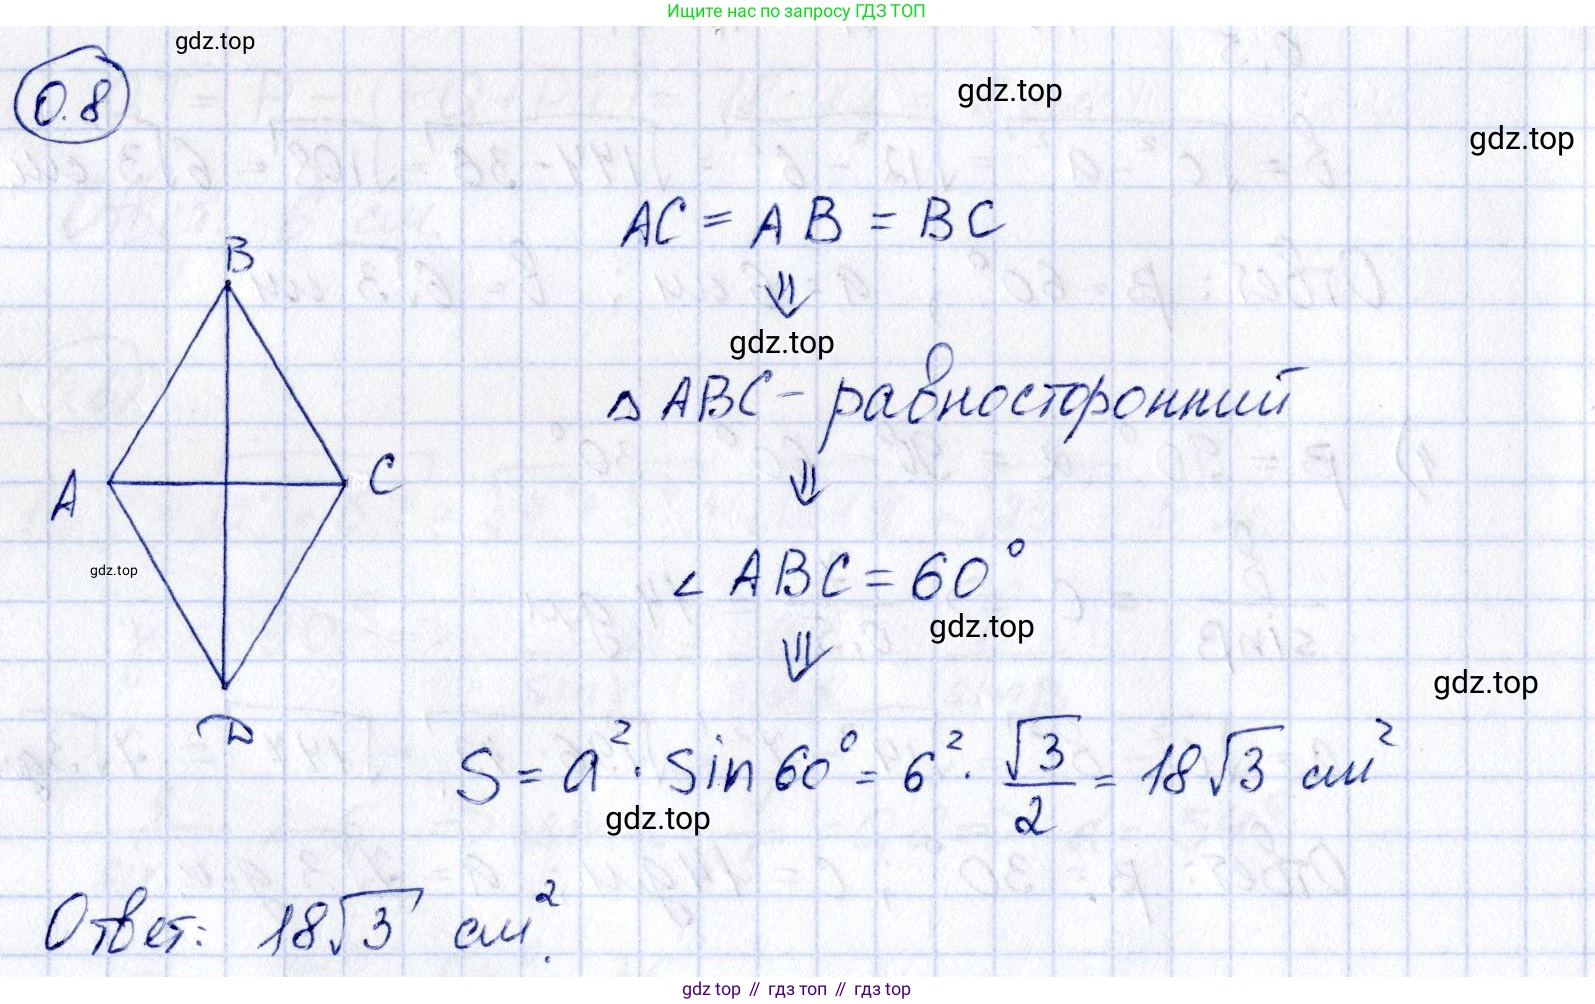 Ищите нас по запросу ГДЗ ТОП
gdz.top
0.8
gdz.top
gdz.top
AC = AB = BC
⇓
B
gdz.top
△ ABC - равносторонний
⇓
A
C
∠ ABC = 60°
gdz.top
gdz.top
⇓
gdz.top
D
S = a² · sin 60° = 6² · √3/2 = 18√3 см²
gdz.top
Ответ: 18√3 см².
gdz top // гдз топ // gdz.top